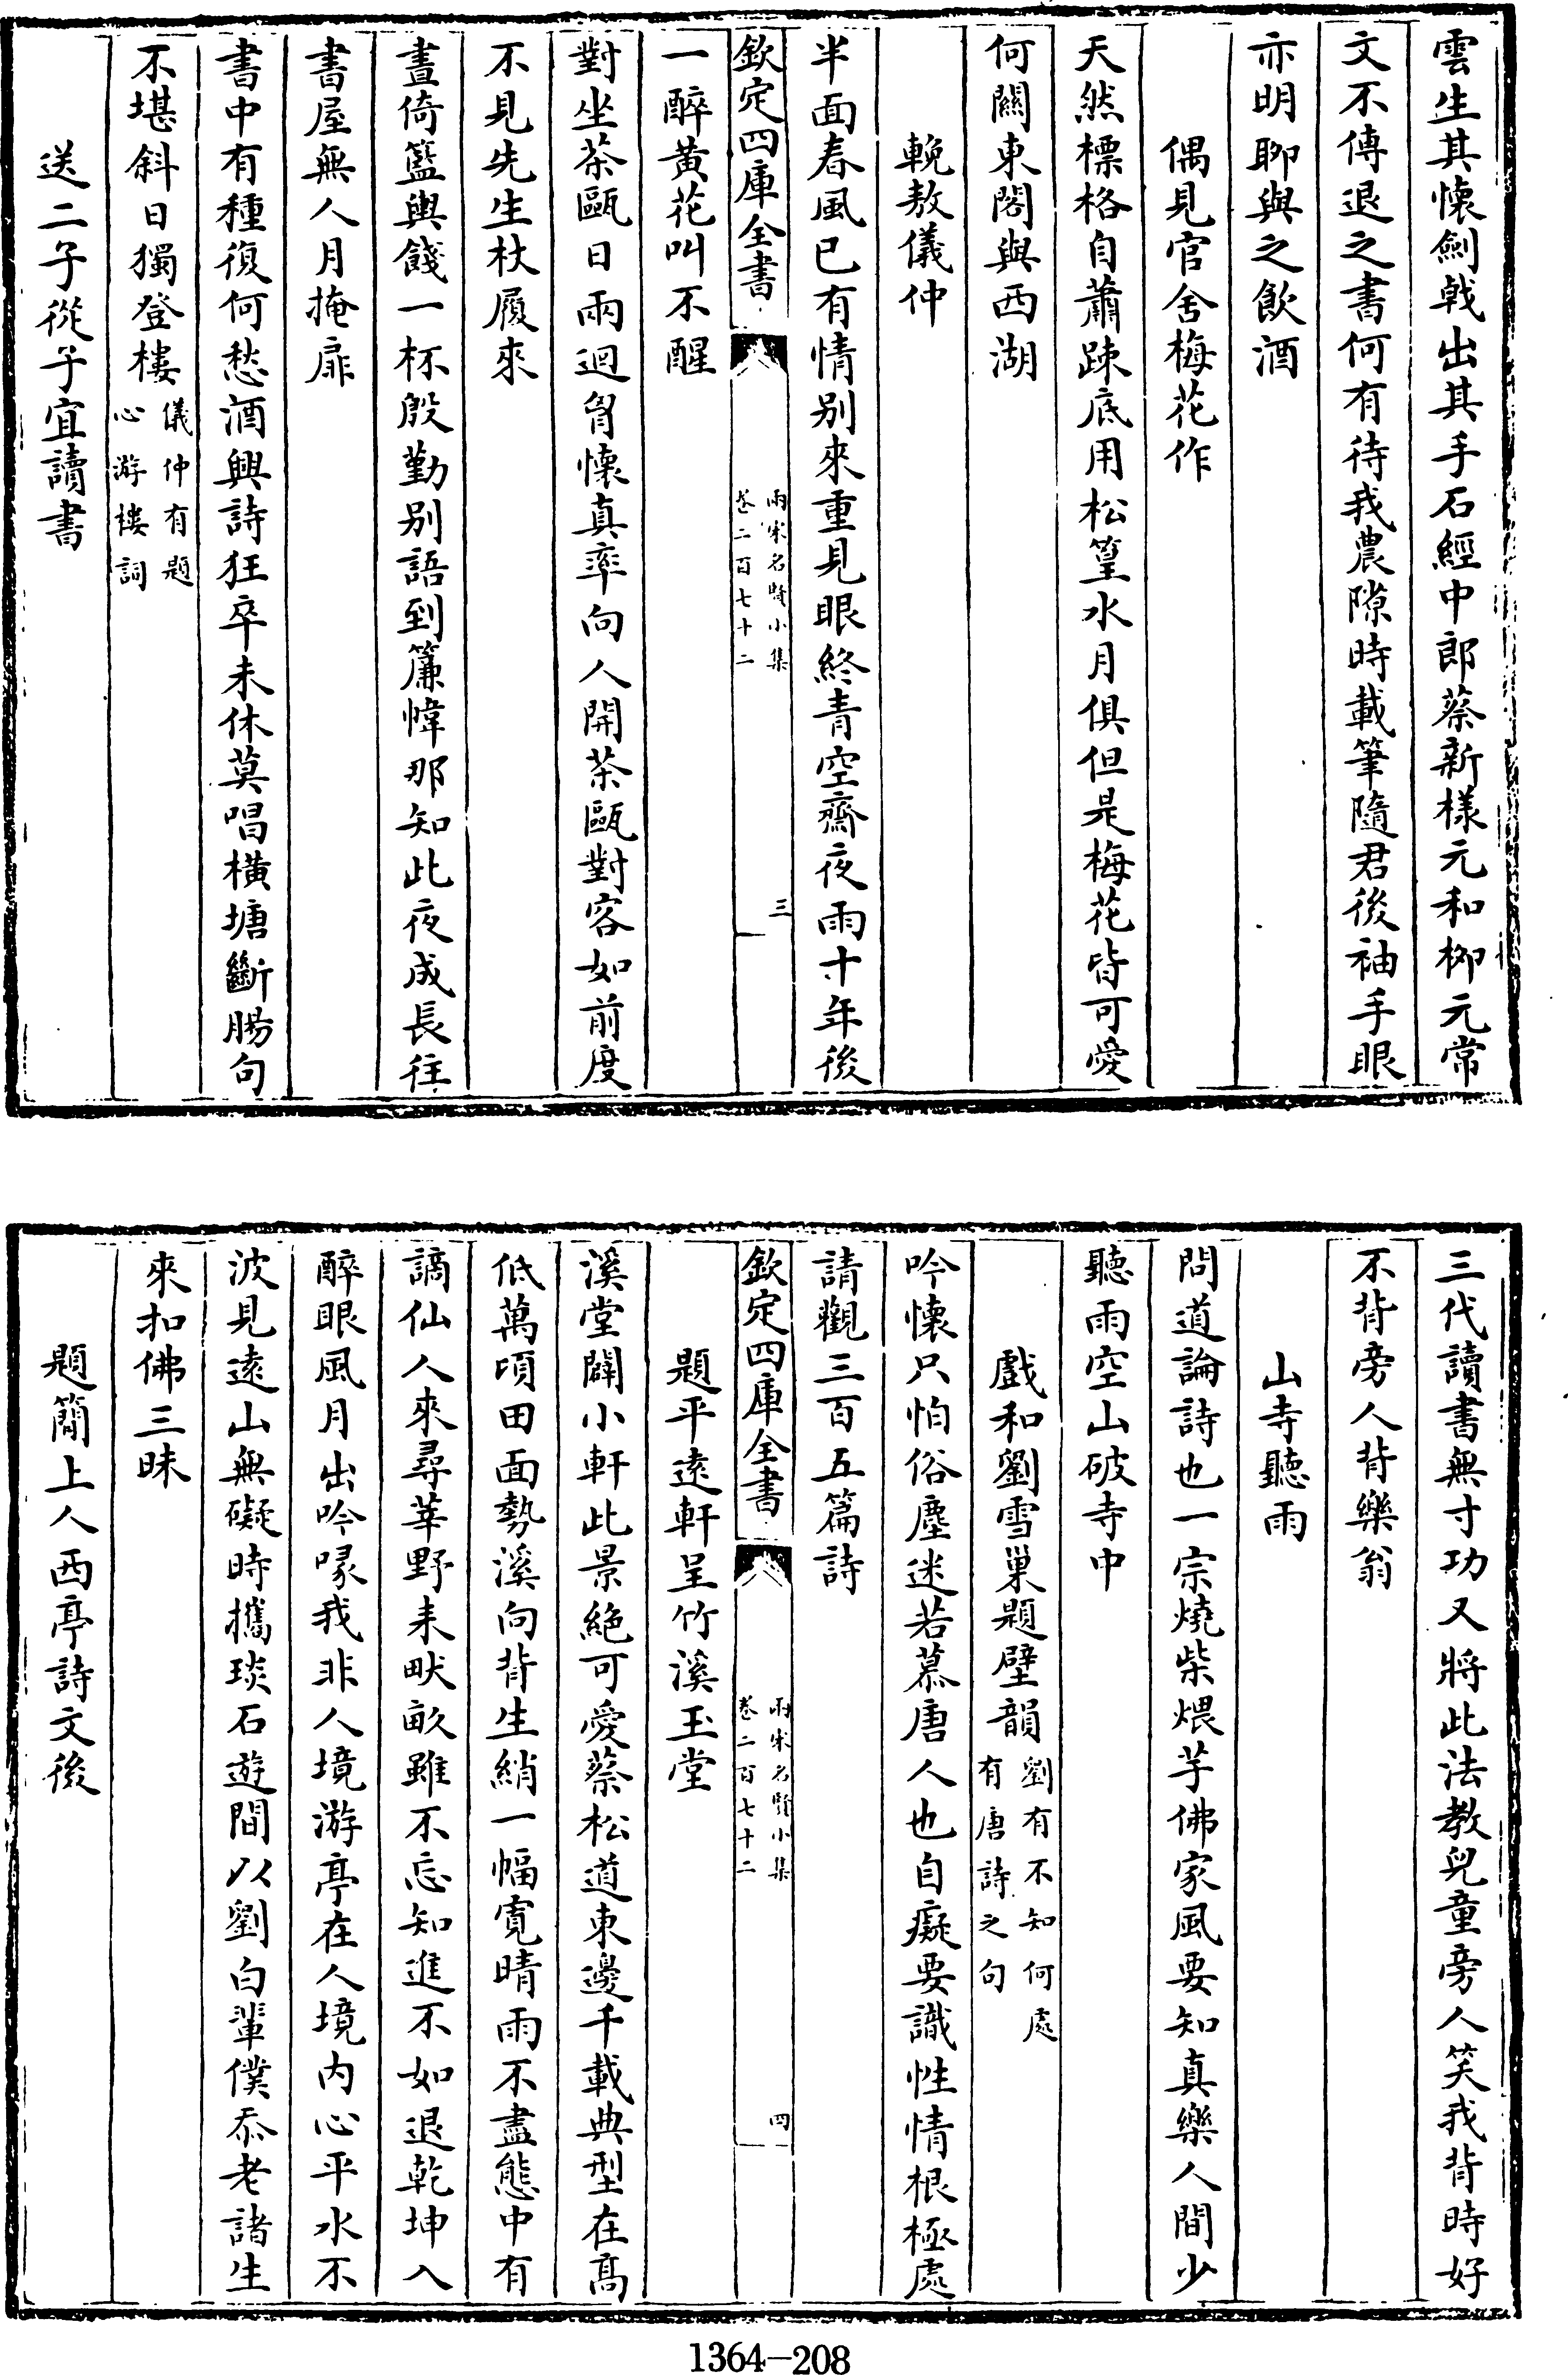 雲生其懷劍戟出其手石經中郎蔡新樣元和柳元常
文不傳退之書何有待我農隙時載筆隨君後袖手眼
亦明聊與之飲酒
偶見官舍梅花作
天然標格自蕭踈底用松篁水月俱但是梅花皆可愛
何關東閣與西湖
輓敖儀仲
半面春風已有情别來重見眼終青空齋夜雨十年後
欽定四庫全書
兩宋名賢小集
卷二百七十二
三
一醉黄花叫不醒
對坐茶甌日兩迴胷懷真率向人開茶甌對客如前度
不見先生杖履來
晝倚籃輿餞一杯殷勤别語到簾幃那知此夜成長往
書屋無人月掩扉
書中有種復何愁酒興詩狂卒未休莫唱横塘斷腸句
不堪斜日獨登樓儀仲有題
心游樓詞
送二子從子宜讀書
三代讀書無寸功又將此法教兒童旁人笑我背時好
不背旁人背樂翁
山寺聽雨
問道論詩也一宗燒柴煨芋佛家風要知真樂人間少
聽雨空山破寺中
戲和劉雪巢題壁韻劉有不知何處
有唐詩之句
吟懷只怕俗塵迷若慕唐人也自癡要識性情根極處
請觀三百五篇詩
欽定四庫全書
兩宋名賢小集
卷二百七十二
四
題平遠軒呈竹溪玉堂
溪堂闢小軒此景絶可愛蔡松道東邊千載典型在高
低萬頃田面勢溪向背生綃一幅寛晴雨不盡態中有
謫仙人來尋莘野耒畎畝雖不忘知進不如退乾坤入
醉眼風月出吟喙我非人境游亭在人境内心平水不
波見遠山無礙時攜琰石遊間以劉白輩僕忝老諸生
來扣佛三昧
題簡上人西亭詩文後
1364—208